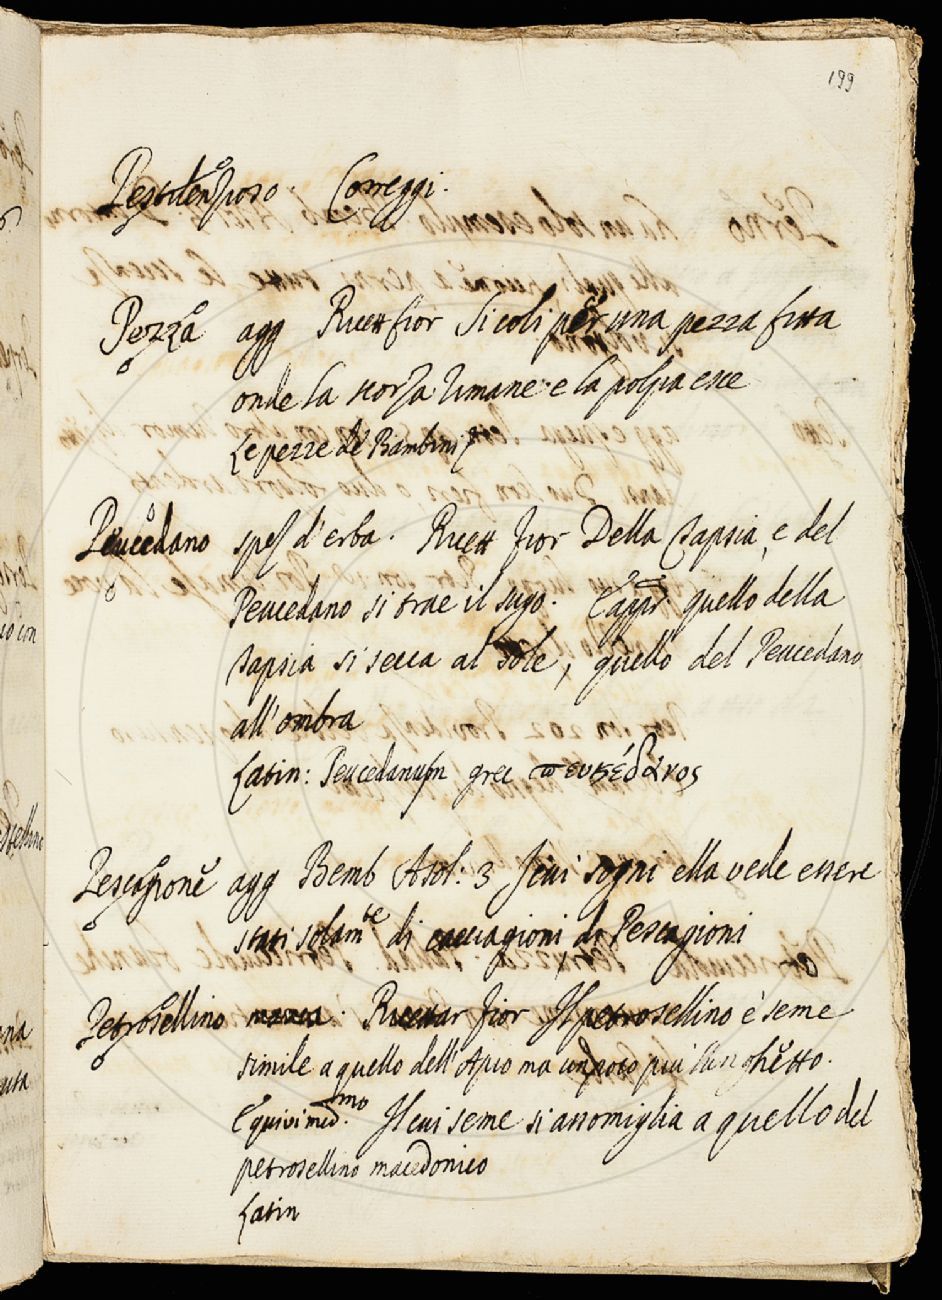 199
Pestilenzoso Correggi.
Pezza agg Ricett fior Si coli per una pezza fitta
onde la scorza rimane e la polpa esce
Le pezze de' Bambini
Peucedano spez d'erba. Ricett fior Della Tapsia, e del
Peucedano si trae il sugo. E appr quello della
tapsia si secca al sole, quello del Peucedano
all'ombra
Latin: Peucedanum grec πευκέδανος
Pescagione agg Bemb Asol: 3 I cui sogni ella vede essere
stati solamte di cacciagioni di Pescagioni
Petrosellino manca. Ricettar fior Il petrosellino è seme
simile a quello dell'Apio ma un poco più lunghetto.
E quivi medmo. Il cui seme si assomiglia a quello del
petrosellino macedonico
Latin